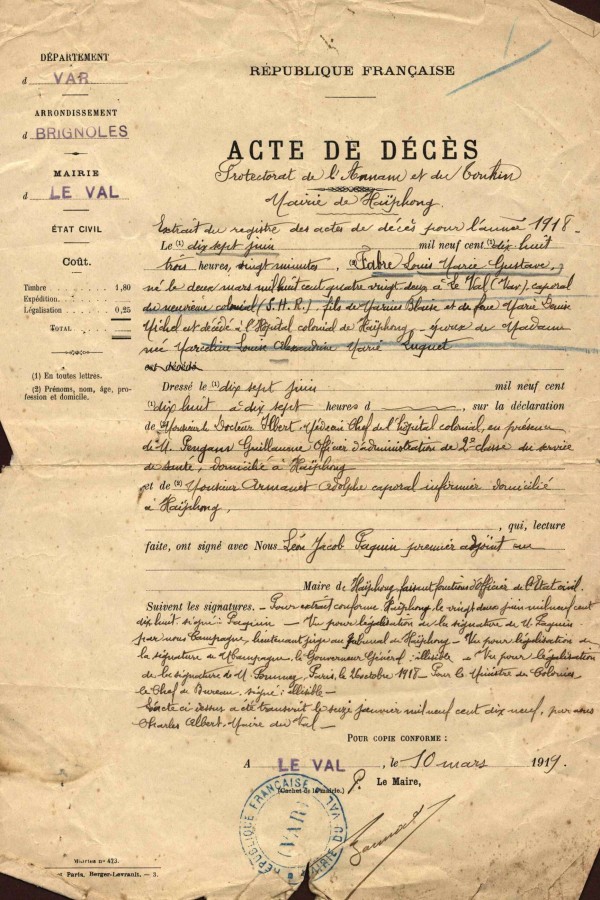 DÉPARTEMENT
d VAR
ARRONDISSEMENT
d BRIGNOLES
MAIRIE
d LE VAL
ÉTAT CIVIL
Coût.
Timbre 1,80
Expédition.
Légalisation 0,25
TOTAL
(1) En toutes lettres.
(2) Prénoms, nom, âge, profession et domicile.
RÉPUBLIQUE FRANÇAISE
ACTE DE DÉCÈS
Protectorat de l'Annam et du Tonkin
Mairie de Haïphong.
Extrait du registre des actes de décès pour l'année 1918-
Le (1) dix sept juin mil neuf cent (1) dix huit
trois heures, vingt minutes, (2) Fabre Louis Marie Gustave,
né le deux mars mil huit cent quatre vingt deux à Le Val (Var), caporal
du neuvième colonial (S.H.R.) fils de Marius Blaise et de feue Marie Louise
Michel est décédé à l'Hôpital colonial de Haïphong, époux de Madame
née Louise Alexandrine Marie Luquet
est décédé
Dressé le (1) dix sept juin mil neuf cent
(1) dix huit à dix sept heures d , sur la déclaration
de (2) Monsieur le Docteur Albert Médecin Chef de l'hôpital colonial, en présence
de M. Pengans Guillaume Officier d'administration de 2e classe du service
de santé, domicilié à Haïphong
et de (2) Monsieur Armanet Adolphe caporal infirmier domicilié
à Haïphong,
, qui, lecture
faite, ont signé avec Nous Léon Jacob Paquin premier adjoint au
Maire de Haïphong, faisant fonction d'Officier de l'État civil.
Suivent les signatures. - Pour extrait conforme Haïphong, le vingt deux juin mil neuf cent
dix huit signé: Paquin - Vu pour légalisation de la signature de M. Paquin
par nous Campagne, lieutenant juge au Tribunal de Haïphong - Vu pour légalisation de
la signature de M. Campagne, le Gouverneur Général: illisible - Vu pour légalisation
de la signature de M. Paris, le 2 octobre 1918 - Pour le Ministre des Colonies
le Chef de Bureau. signé: illisible -
L'acte ci dessus a été transcrit le seize janvier mil neuf cent dix neuf, par nous
Charles Albert Maire du Val -
POUR COPIE CONFORME :
A LE VAL , le 10 mars 1919.
(Cachet de la mairie.) P. Le Maire,
RÉPUBLIQUE FRANÇAISE
MAIRIE DU VAL
(VAR)
MAIRIES N° 423.
Paris, Berger-Levrault. - 3.